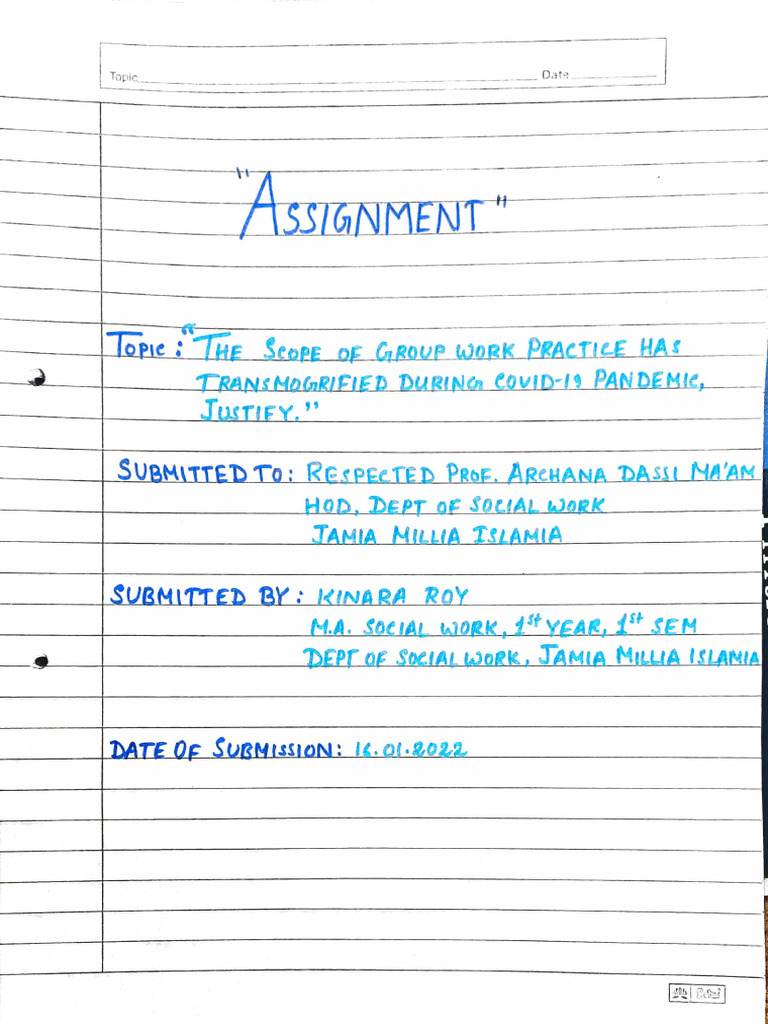 Topic Date
"ASSIGNMENT"
TOPIC: "THE SCOPE OF GROUP WORK PRACTICE HAS
TRANSMOGRIFIED DURING COVID-19 PANDEMIC,
JUSTIFY."
SUBMITTED TO: RESPECTED PROF. ARCHANA DASSI MA'AM
HOD, DEPT OF SOCIAL WORK
JAMIA MILLIA ISLAMIA
SUBMITTED BY: KINARA ROY
M.A. SOCIAL WORK, 1st YEAR, 1st SEM
DEPT OF SOCIAL WORK, JAMIA MILLIA ISLAMIA
DATE OF SUBMISSION: 16.01.2022